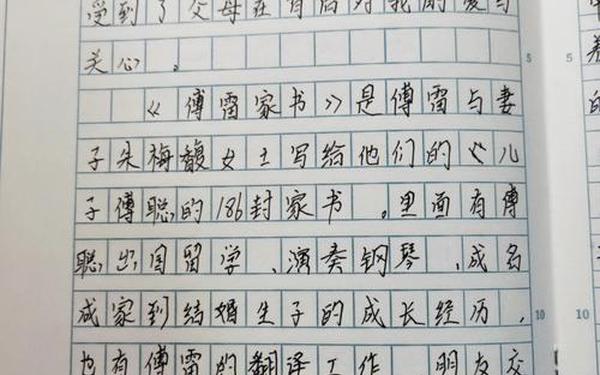 受到了父母在背后对我的爱与
关心。
《傅雷家书》是傅雷与妻
子朱梅馥女士写给他们的《儿
子傅聪的186封家书。里面有傅
聪出国留学、演奏钢琴、成名
成家到结婚生子的成长经历,
也有傅雷的翻译工作、朋友交
5
10
5
10
的